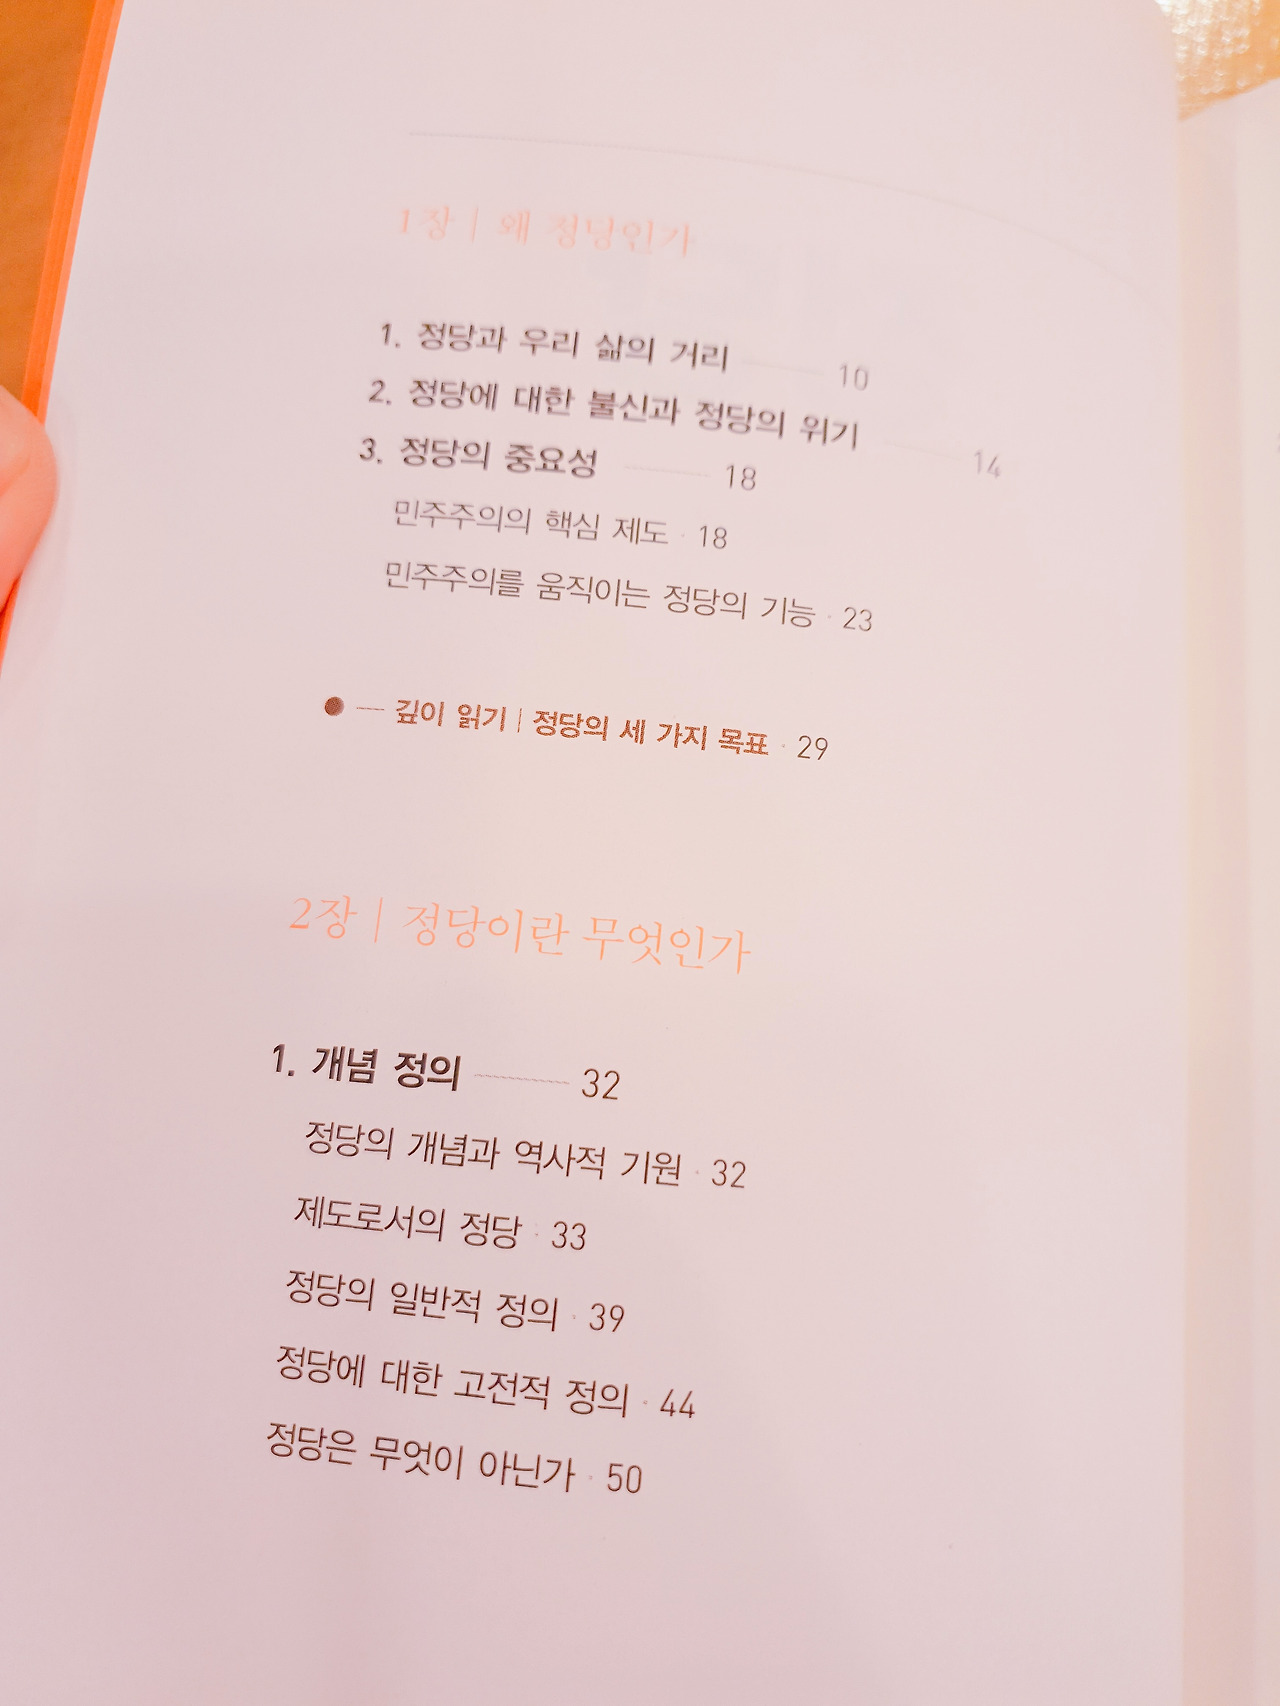 1장 | 왜 정당인가
1. 정당과 우리 삶의 거리 10
2. 정당에 대한 불신과 정당의 위기 14
3. 정당의 중요성 18
민주주의의 핵심 제도 · 18
민주주의를 움직이는 정당의 기능 · 23
● — 깊이 읽기 | 정당의 세 가지 목표 · 29
2장 | 정당이란 무엇인가
1. 개념 정의 32
정당의 개념과 역사적 기원 · 32
제도로서의 정당 · 33
정당의 일반적 정의 · 39
정당에 대한 고전적 정의 · 44
정당은 무엇이 아닌가 · 50